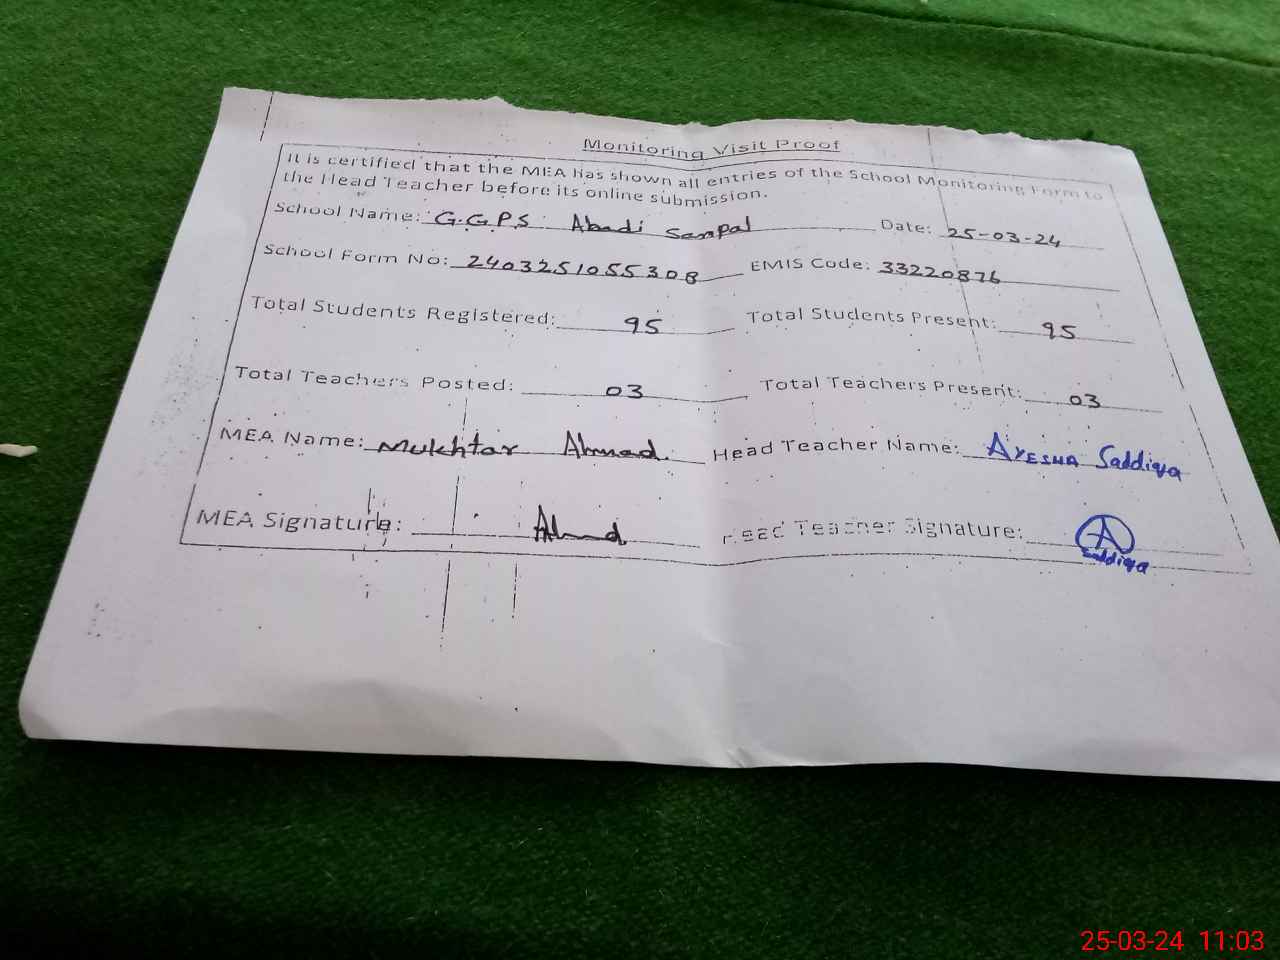 Monitoring Visit Proof
It is certified that the MEA has shown all entries of the School Monitoring Form to
the Head Teacher before its online submission.
School Name: G.G.P.S Abadi Sanpal Date: 25-03-24
School Form No: 2403251055308 EMIS Code: 33220876
Total Students Registered: 95 Total Students Present: 95
Total Teachers Posted: 03 Total Teachers Present: 03
MEA Name: Mukhtar Ahmad. Head Teacher Name: AYESHA Saddiqa
MEA Signature: Ahmad Head Teacher Signature: A
Saddiqa
25-03-24 11:03